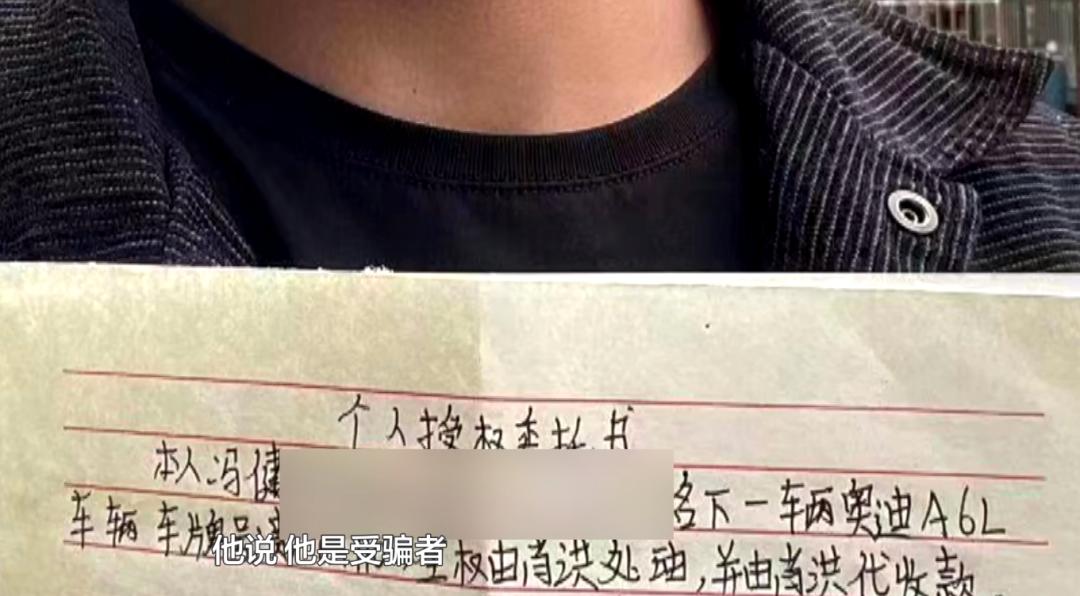 个人授权委托书
本人冯健
名下一车辆奥迪A6L
车辆车牌号
权由肖洪处理,并由肖洪代收款。
他说 他是受骗者